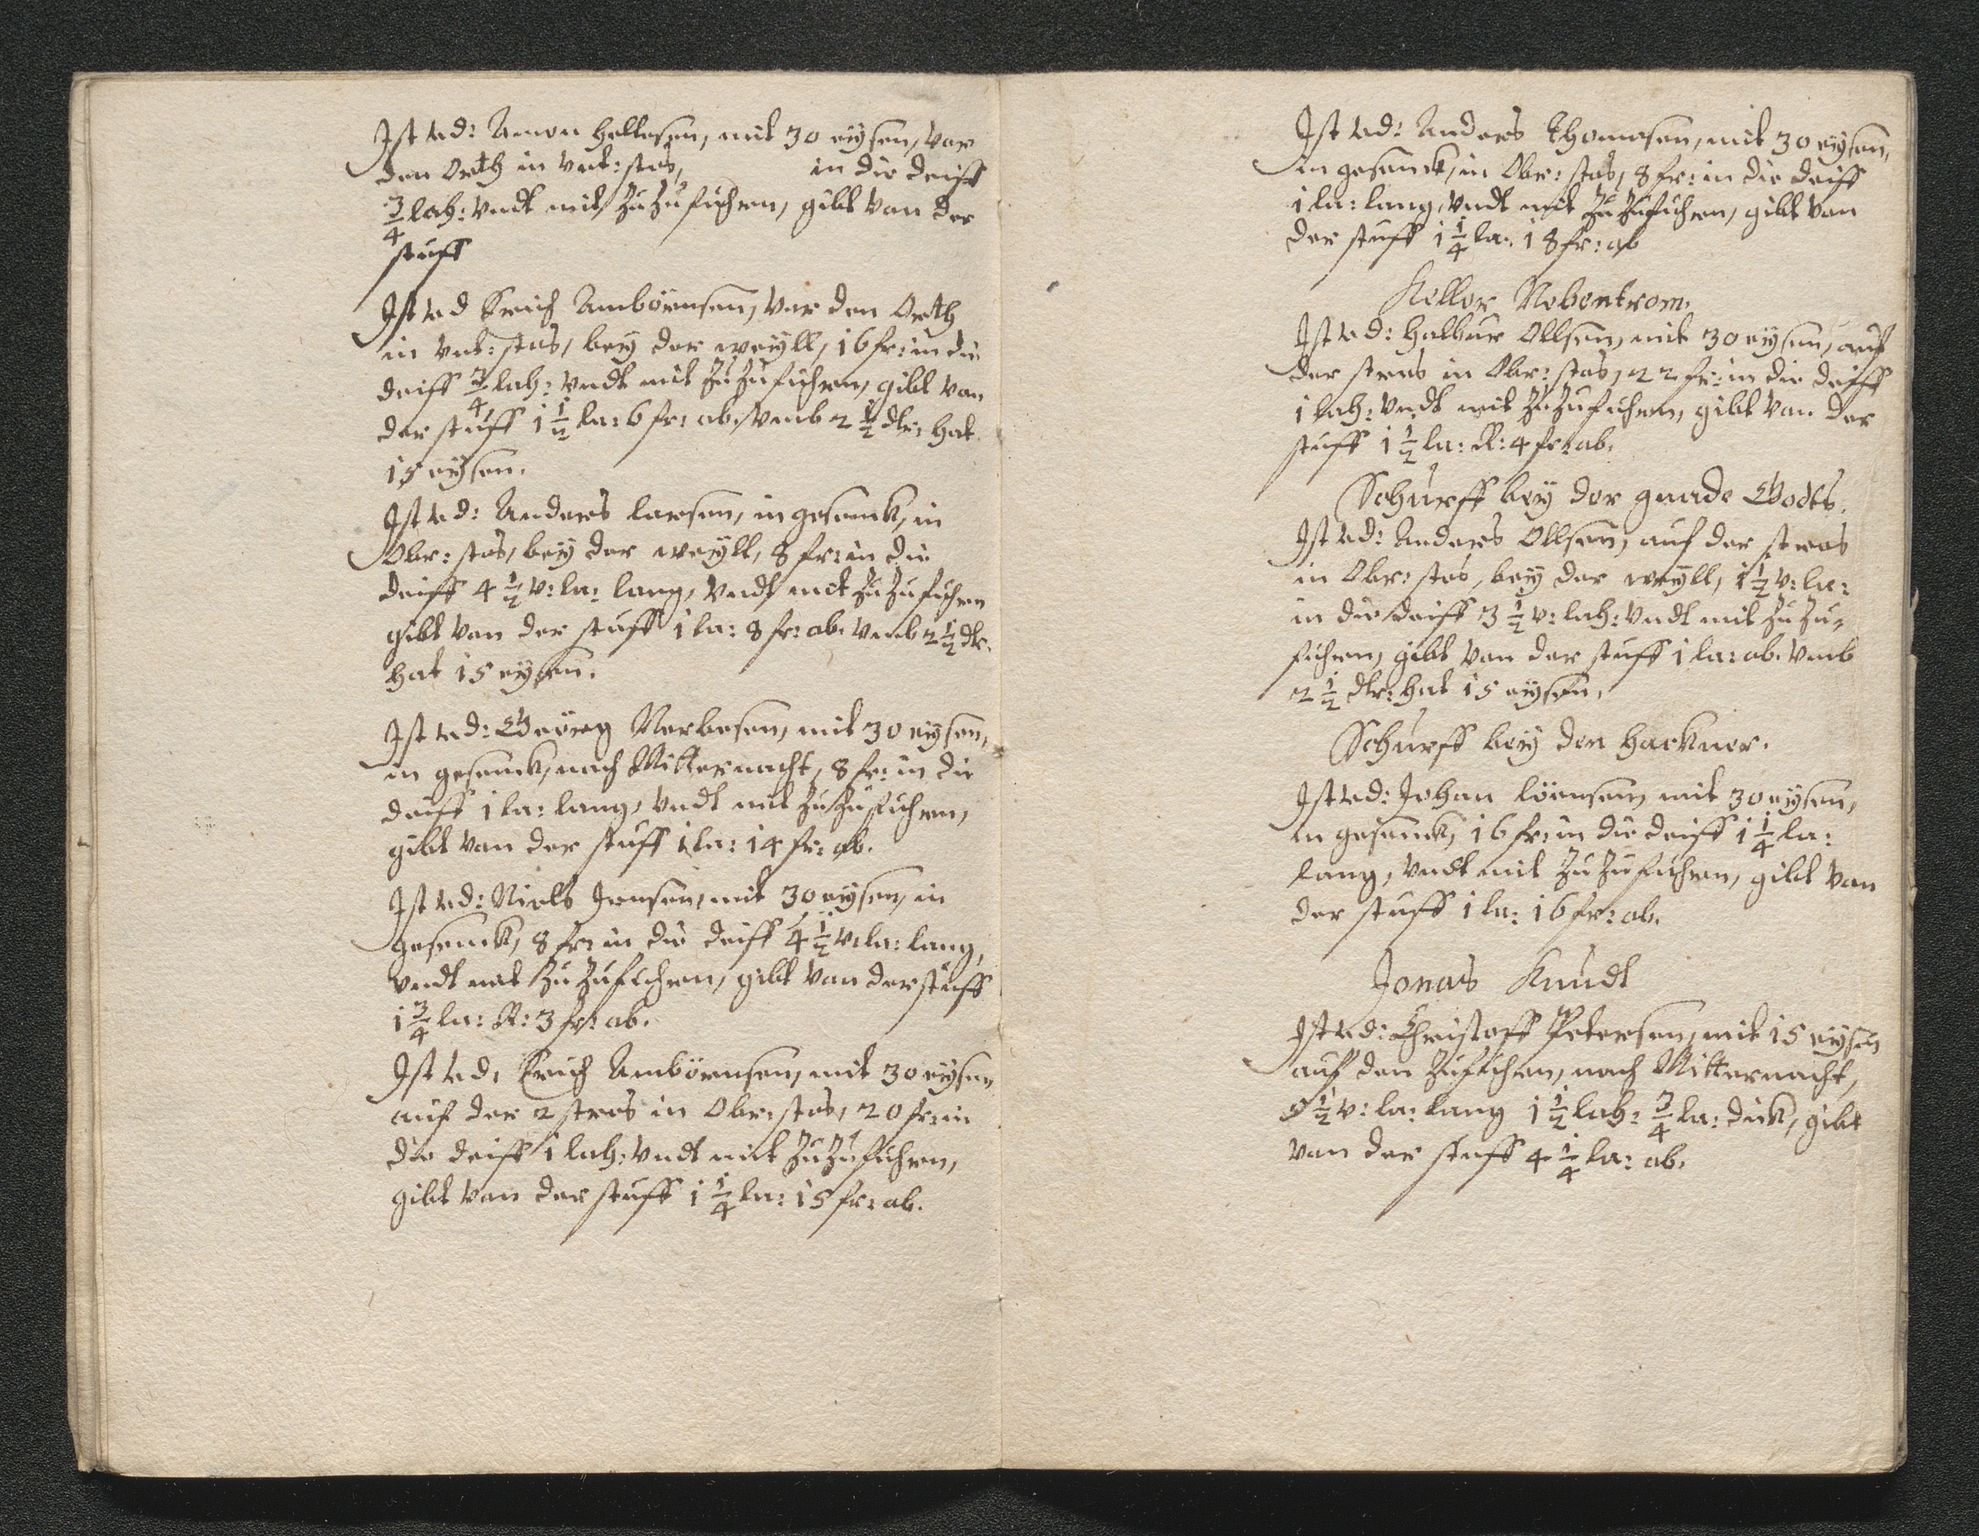 Ist vd: Amon Hellesen, mit 30 eysen, vor
den Orth in vnt: stos, in die deiff
3/4 lah: vndt mit Zu Zufuhren, gibt van der
stuff
Ist vd Erich Ambörnsen, vor den Orth
in vnt: stos, bey der weyll, 16 fr: in die
deiff 3/4 lah: vndt mit Zu Zufuhren, gibt van
der stuff 1 1/2 la: 6 fr: ab, vmb 2 1/2 dlr: hat
15 eysen.
Ist vd: Anders Larsen, in gesenck, in
Obr: stos, bey der weyll, 8 fr: in die
deiff 4 1/2 v: la: lang, vndt mit Zu Zufuhren
gibt van der stuff 1 la: 8 fr: ab. vmb 2 1/2 dlr.
hat 15 eysen.
Ist vd: Georg Verbesen, mit 30 eysen,
in gesenck, nach Mitternacht, 8 fr: in die
deiff 1 la: lang, vndt mit Zu Zufuhren,
gibt van der stuff 1 la: 14 fr: ab.
Ist vd: Niels Jensen, mit 30 eysen, in
gesenck, 8 fr: in die deiff 4 1/2 v: la: lang,
vndt mit Zu Zufuhren, gibt van der stuff
1 3/4 la: R: 3 fr: ab.
Ist vd, Erich Ambörnsen, mit 30 eysen
auf der 2 stros in Obr: stos, 20 fr: in
die deiff 1 lah: vndt mit Zu Zufuhren,
gibt van der stuff 1 1/4 la: 15 fr: ab.
Ist vd: Anders Thomesen, mit 30 eysen,
in gesenck, in Obr: stos, 8 fr: in die deiff
1 la: lang, vndt mit Zu Zufuhren, gibt van
der stuff 1 1/4 la: 18 fr: ab
Keller Nebentrom.
Ist vd: Halbur Ollsen, mit 30 eysen, auf
der stros in Obr: stos, 22 fr: in die deiff
1 lah: vndt mit Zu Zufuhren, gibt van der
stuff 1 1/2 la: R: 4 fr: ab.
Schurff bey der gnade Godts.
Ist vd: Anders Ollsen, auf der stros
in Obr: stos, bey der weyll, 1 1/2 v: la:
in die deiff 3 1/2 v: lah: vndt mit Zu Zu-
fuhren, gibt van der stuff 1 la: ab. vmb
2 1/2 dlr: hat 15 eysen,
Schurff bey den Harkner.
Ist vd: Johan Löensen, mit 30 eysen,
in gesenck, 16 fr: in die deiff 1 1/4 la:
lang, vndt mit Zu Zufuhren, gibt van
der stuff 1 la: 16 fr: ab.
Jonas Kundt
Ist vd: Christoff Petersen, mit 15 eysen
auf den Zufuhren, nach Mitternacht,
5 1/2 v: la: lang 1 1/2 lah: 3/4 la: dick, gibt
van der stuff 4 1/4 la: ab.